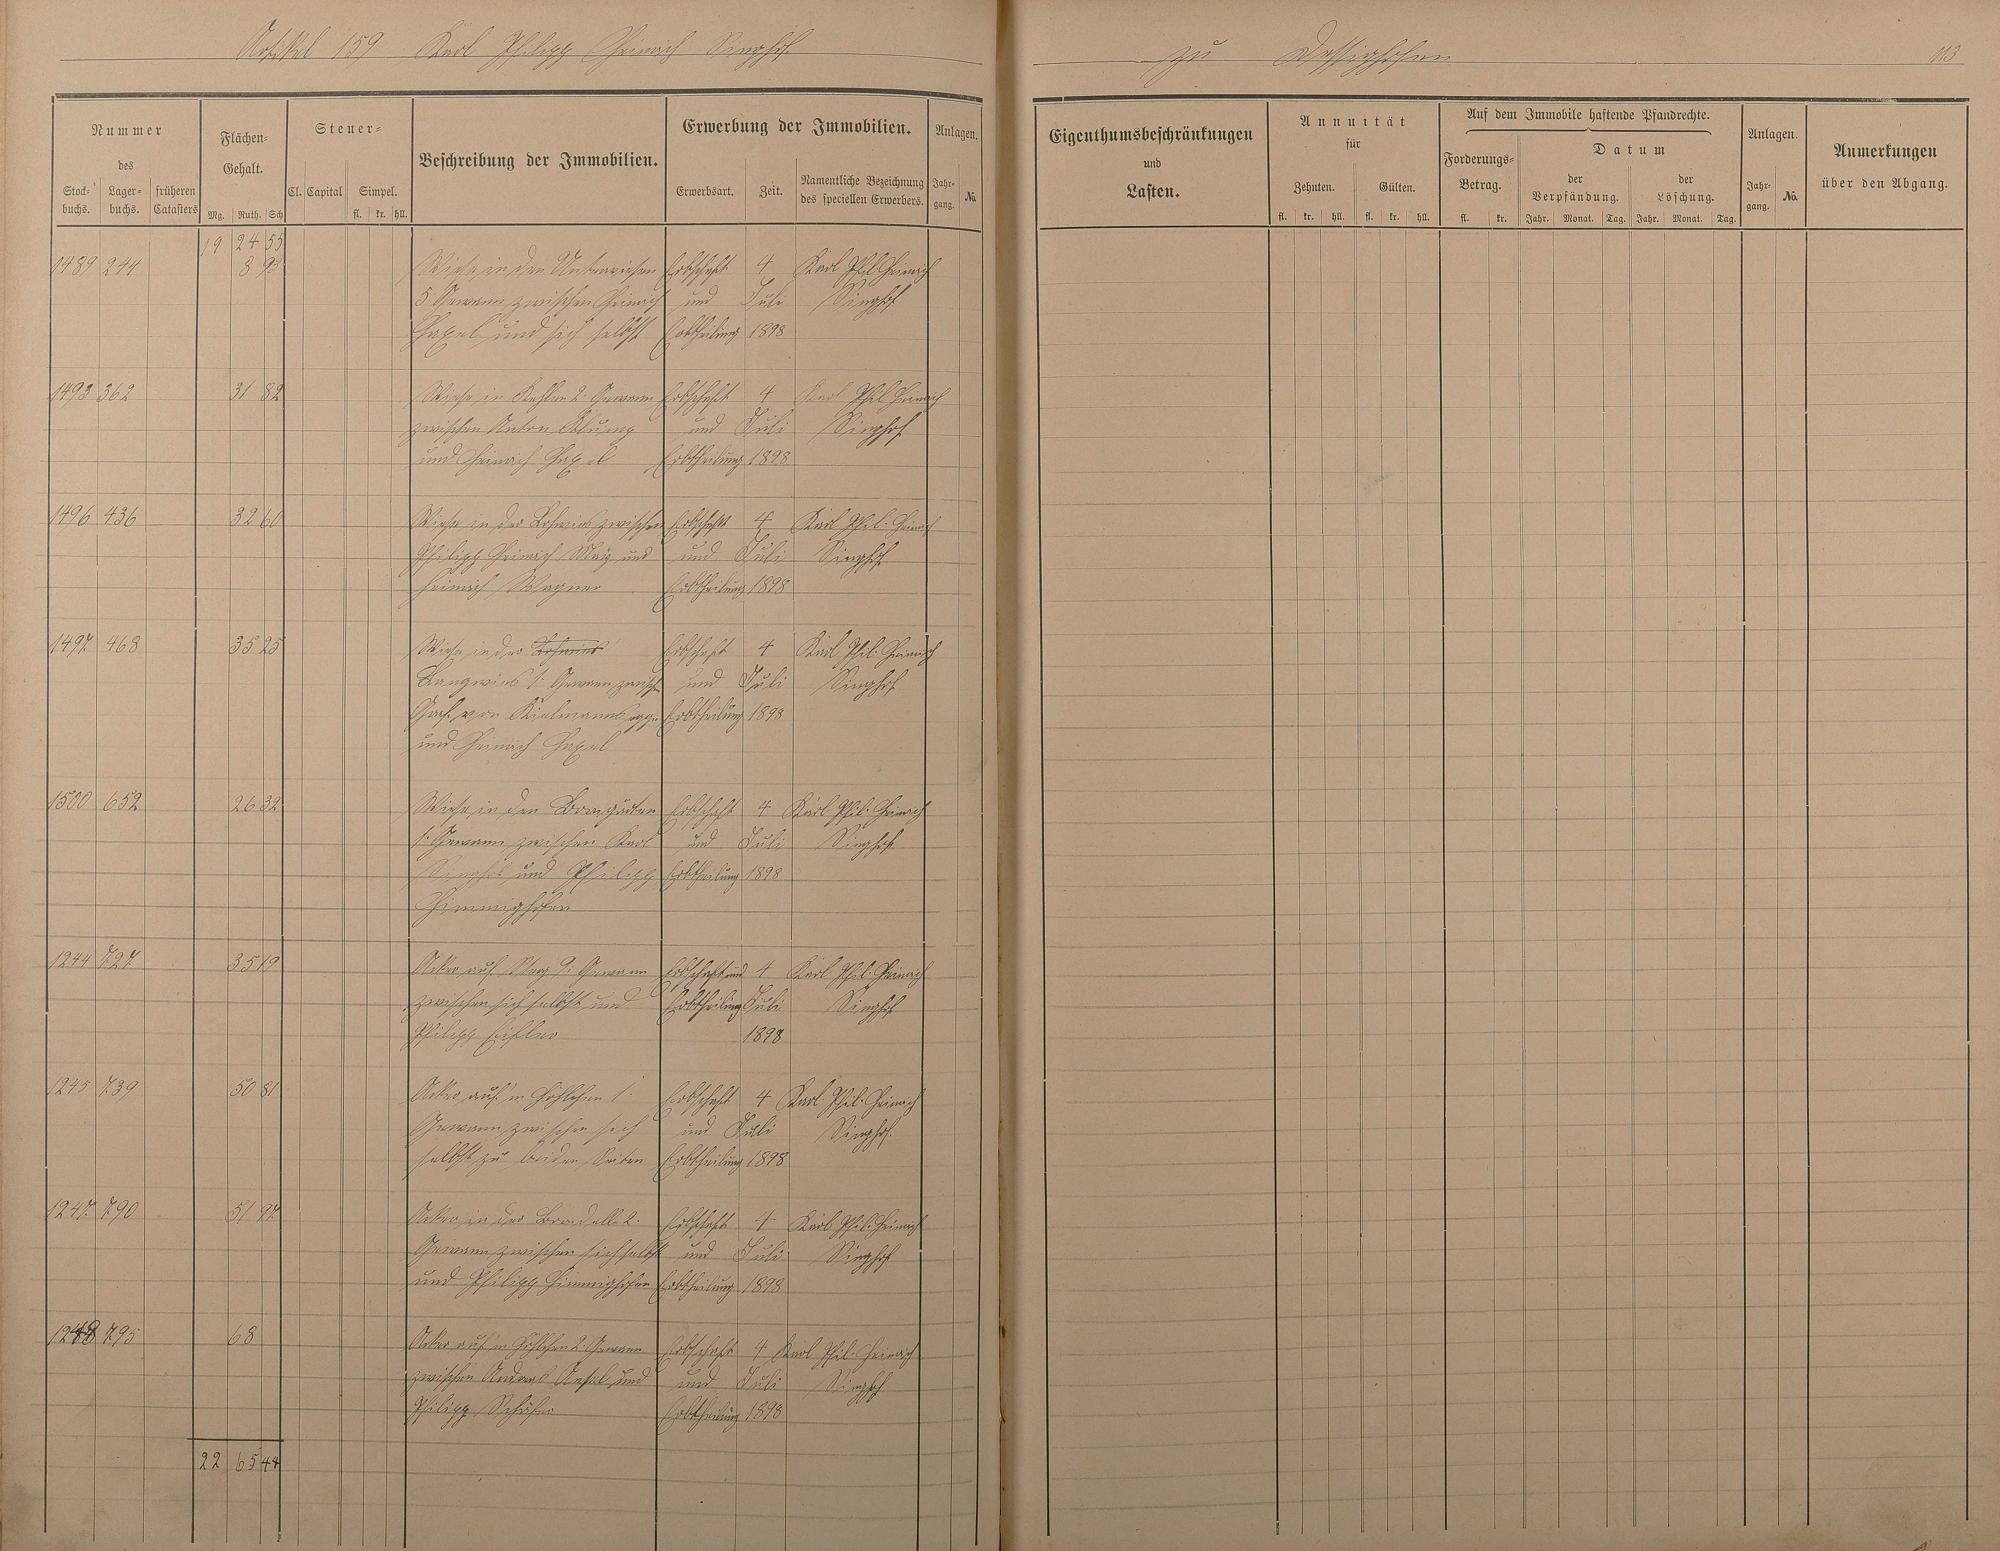 Artikel 159 Karl Philipp Heinrich Singhof
zu Dessighofen
113
Nummer
des
Stock-buchs.
Lager-buchs.
früheren Catasters
Flächen-Gehalt.
Mg. Ruth. Sch
Steuer-
Cl. Capital Simpel.
fl. kr. hll.
Beschreibung der Immobilien.
Erwerbung der Immobilien.
Erwerbsart. Zeit. Namentliche Bezeichnung des speciellen Erwerbers.
Anlagen.
Jahr-gang. No.
Eigenthumsbeschränkungen
und
Lasten.
Annuität
für
Zehnten. Gülten.
fl. kr. hll. fl. kr. hll.
Auf dem Immobile haftende Pfandrechte.
Forderungs-Betrag.
fl. kr.
Datum
der Verpfändung. der Löschung.
Jahr. Monat. Tag. Jahr. Monat. Tag.
Anlagen.
Jahr-gang. No.
Anmerkungen
über den Abgang.
19 24 55
1489 244 8 93 Wiese in den Unterwiesen Erbschaft 4 Karl Phil. Heinrich
5 Gewann zwischen Heinrich und Juli Singhof
und sich selbst Erbtheilung 1898
1493 362 31 82 Wiese in 2. Gewann Erbschaft 4 Karl Phil Heinrich
zwischen Anton Klump und Juli Singhof
und Heinrich Erbtheilung 1898
1496 436 32 60 Wiese in der zwischen Erbschaft 4 Karl Phil. Heinrich
Philipp Heinrich May und und Juli Singhof
Heinrich Wagner Erbtheilung 1898
1497 468 35 25 Wiese in der Erbschaft 4 Karl Phil. Heinrich
Langwies 1. Gewann zwischen und Juli Singhof
von Kielmannsegge Erbtheilung 1898
und Heinrich
1500 652 26 32 Wiese in den Erbschaft 4 Karl Phil. Heinrich
1. Gewann zwischen Karl und Juli Singhof
Singhof und Philipp Erbtheilung 1898
Himmighofen
1244 727 35 19 Acker auf 9. Gewann Erbschaft und 4 Karl Phil. Heinrich
zwischen sich selbst und Erbtheilung Juli Singhof
Philipp 1898
1245 739 50 81 Acker auf'm Höhlchen 1. Erbschaft 4 Karl Phil. Heinrich
Gewann zwischen sich und Juli Singhof.
selbst zu beiden Seiten Erbtheilung 1898
1247 790 51 97 Acker in der 2. Erbschaft 4 Karl Phil. Heinrich
Gewann zwischen sich selbst und Juli Singhof
und Philipp Himmighofen Erbtheilung 1898
1248 795 68 Acker auf'm Höhlchen 2. Gewann Erbschaft 4 Karl Phil. Heinrich
zwischen Andreas und und Juli Singhof
Philipp Schäfer Erbtheilung 1898
22 65 44